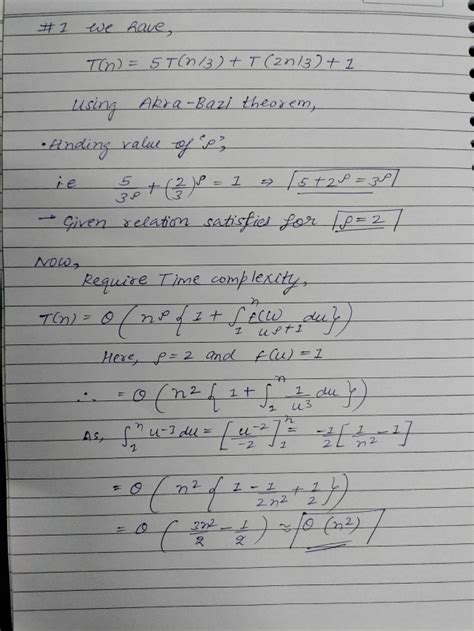 #1 We have,
T(n) = 5T(n/3) + T(2n/3) + 1
Using Akra-Bazi theorem,
• Finding value of 'P',
i.e 5/3^P + (2/3)^P = 1 ⇒ 5 + 2^P = 3^P
→ Given relation satisfies for P = 2
Now,
Require Time complexity,
T(n) = θ ( n^P { 1 + ∫_1^n f(u)/u^{P+1} du } )
Here, P = 2 and f(u) = 1
∴ = θ ( n^2 { 1 + ∫_1^n 1/u^3 du } )
As, ∫_1^n u^{-3} du = [ u^{-2}/-2 ]_1^n = -1/2 [ 1/n^2 - 1 ]
= θ ( n^2 { 1 - 1/2n^2 + 1/2 } )
= θ ( 3n^2/2 - 1/2 ) ≈ θ (n^2)